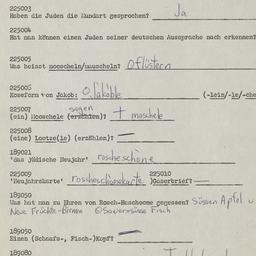 225003
Haben die Juden die Mundart gesprochen? Ja
225004
Hat man können einen Juden seiner deutschen Aussprache nach erkennen?
225005
Was heisst mooscheln/muuscheln? flüstern
225006
Koseform von Jakob: Jakoble (-lein/-le/-che
225007
(ein) Mooschele (erzählen)? sagen + moschele
225008
(eine) Lootze(le) (erzählen)? —
189021
'das jüdische Neujahr' rosheschone
225009 225010
'Neujahrskarte' roscheschonekarte )Gaserbrief? —
189050
Was hat man zu Ehren von Rosch-Haschoone gegessen? Süssen Apfel u
Neue Früchte-Birnen Sauersüsse Fisch
189050
Einen (Schaafs-, Fisch-)Kopf? —
189080